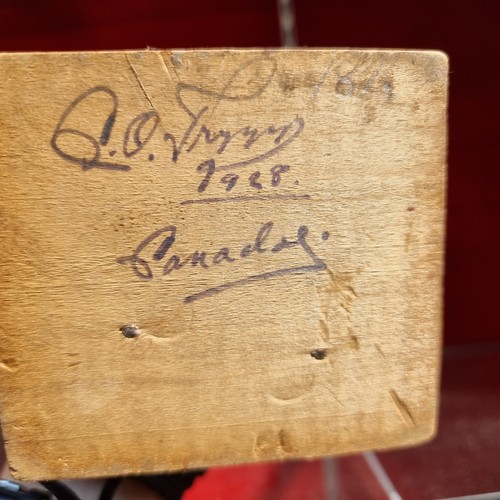 S.O. Trygg
1928.
Canada.